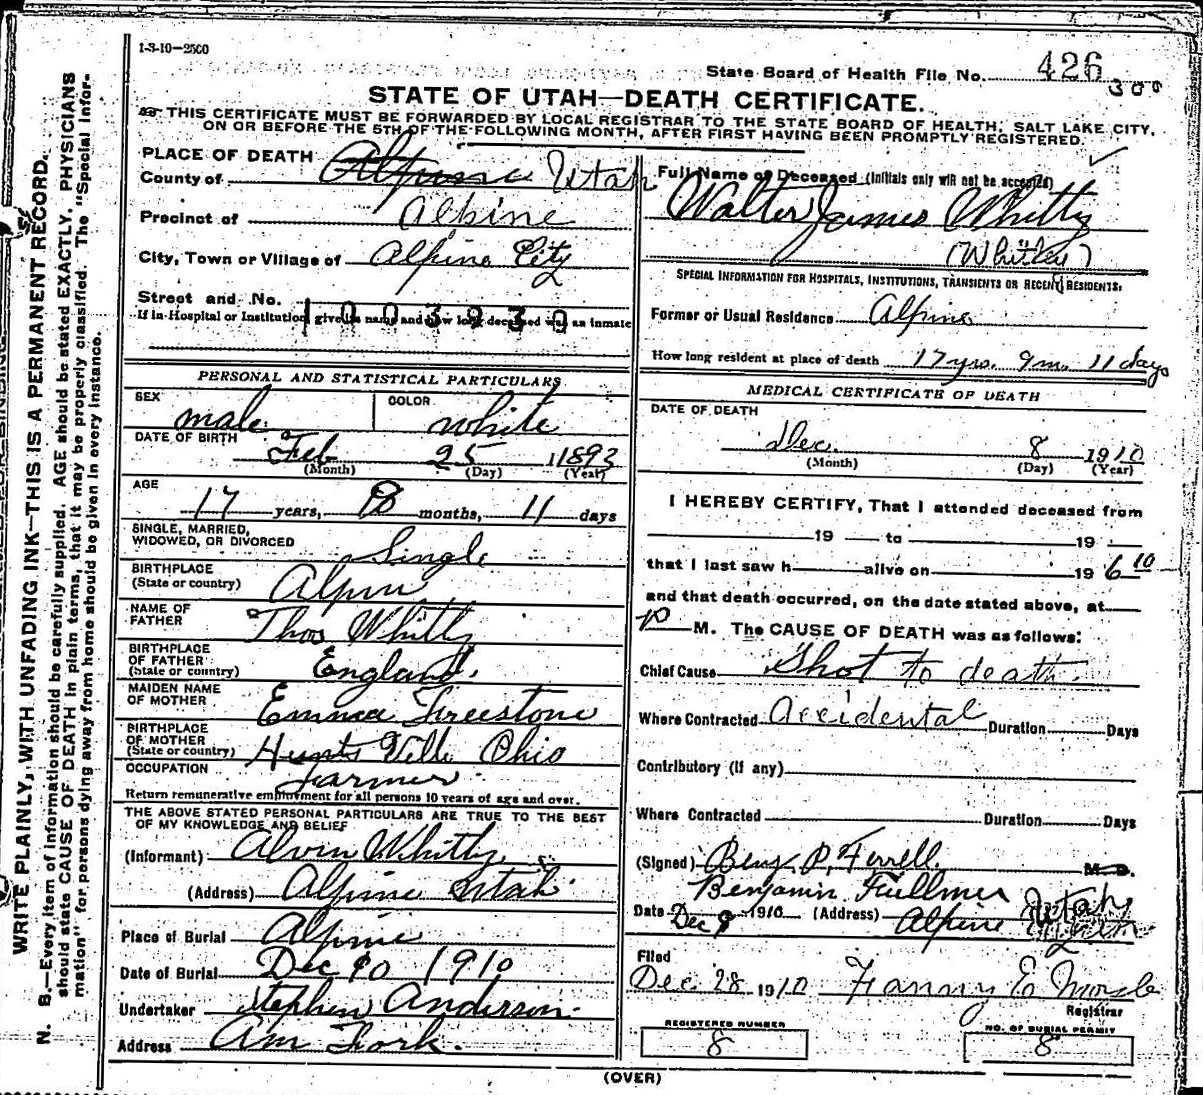 1-3-10-2500
State Board of Health File No. 426
300
STATE OF UTAH—DEATH CERTIFICATE.
THIS CERTIFICATE MUST BE FORWARDED BY LOCAL REGISTRAR TO THE STATE BOARD OF HEALTH, SALT LAKE CITY,
ON OR BEFORE THE 5TH OF THE FOLLOWING MONTH, AFTER FIRST HAVING BEEN PROMPTLY REGISTERED.
WRITE PLAINLY, WITH UNFADING INK—THIS IS A PERMANENT RECORD.
N. B.—Every item of information should be carefully supplied. AGE should be stated EXACTLY. PHYSICIANS
should state CAUSE OF DEATH in plain terms, that it may be properly classified. The "Special Infor-
mation" for persons dying away from home should be given in every instance.
PLACE OF DEATH
County of Alpine Utah
Precinct of Alpine
City, Town or Village of Alpine City
Street and No.
1003939
If in Hospital or Institution, give its name and how long deceased was an inmate
PERSONAL AND STATISTICAL PARTICULARS
SEX male COLOR white
DATE OF BIRTH Feb 25 1893
(Month) (Day) (Year)
AGE
17 years, 9 months, 11 days
SINGLE, MARRIED,
WIDOWED, OR DIVORCED Single
BIRTHPLACE
(State or country) Alpin
NAME OF
FATHER Thos Whitty
BIRTHPLACE
OF FATHER
(State or country) England.
MAIDEN NAME
OF MOTHER Emma Freestone
BIRTHPLACE
OF MOTHER
(State or country) Hunts Ville Ohio
OCCUPATION Farmer
Return remunerative employment for all persons 10 years of age and over.
THE ABOVE STATED PERSONAL PARTICULARS ARE TRUE TO THE BEST
OF MY KNOWLEDGE AND BELIEF
(Informant) Alvin Whitty
(Address) Alpine Utah
Place of Burial Alpine
Date of Burial Dec 10 1910
Undertaker Stephen Anderson
Address Am Fork.
Full Name of Deceased (Initials only will not be accepted)
Walter James Whitty
(Whitley)
SPECIAL INFORMATION FOR HOSPITALS, INSTITUTIONS, TRANSIENTS OR RECENT RESIDENTS:
Former or Usual Residence Alpine
How long resident at place of death 17 yrs. 9 m. 11 days
MEDICAL CERTIFICATE OF DEATH
DATE OF DEATH
Dec. 8 1910
(Month) (Day) (Year)
I HEREBY CERTIFY, That I attended deceased from
19 to 19
that I last saw h alive on 19 6 10
and that death occurred, on the date stated above, at
P M. The CAUSE OF DEATH was as follows:
Chief Cause Shot to death
Where Contracted Accidental Duration Days
Contributory (if any)
Where Contracted Duration Days
(Signed) Benj. P. Ferrell M. D.
Benjamin Fullmer
Date Dec 9 1910 (Address) Alpine Utah
Filed
Dec 28 1910 Fanny E
Registrar
REGISTERED NUMBER
8
NO. OF BURIAL PERMIT
8
(OVER)